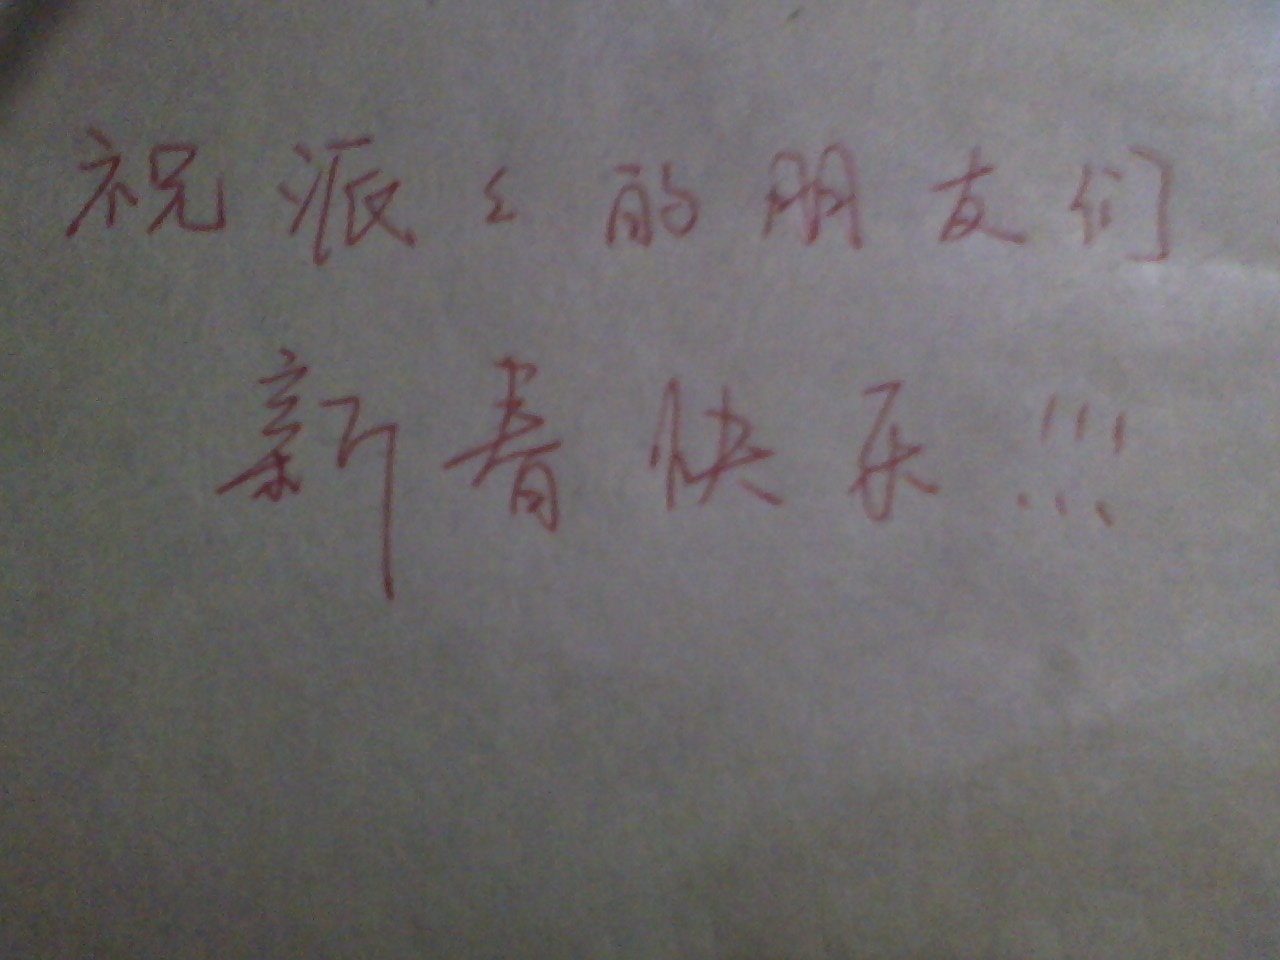 祝派派的朋友们
新春快乐!!!